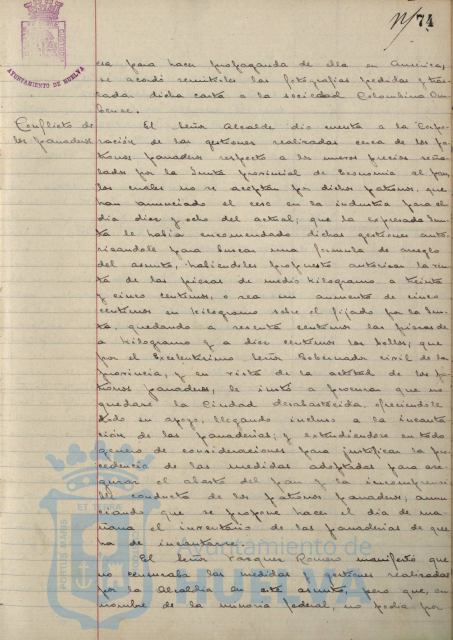 Nº/74
AYUNTAMIENTO DE HUELVA
esa para hacer propaganda de ella en America,
se acordó remitirles las fotografías pedidas y tras
ladar dicha carta a la sociedad Colombina Onu
bense.
Conflicto de
los panaderos
El Señor Alcalde dio cuenta a la Corpo
ración de las gestiones realizadas cerca de los pa
tronos panaderos respecto a los nuevos precios seña
lados por la Junta provincial de Economia al pan,
los cuales no se aceptan por dichos patronos, que
han anunciado el cese en la industria para el
dia diez y ocho del actual; que la expresada Jun
ta le habia encomendado dichas gestiones auto
rizandole para buscar una formula de arreglo
del asunto, habiendoles propuesto autorizar la ven
ta de las piezas de medio kilogramo a treinta
y cinco centimos, o sea un aumento de cinco
centimos en kilogramo sobre el fijado por la Jun
ta, quedando a sesenta centimos las piezas de
a kilogramo y a diez centimos los bollos; que
por el Excelentisimo Señor Gobernador civil de la
provincia, y en vista de la actitud de los pa
tronos panaderos, le instó a procurar que no
quedase la Ciudad desabastecida, ofreciendole
todo su apoyo, llegando incluso a la incauta
ción de las panaderias; y extendiendose en todo
genero de consideraciones para justificar la pro
cedencia de las medidas adoptadas para ase
gurar el abasto del pan y la incomprensi
ble conducta de los patronos panaderos, anun
ciando que se propone hacer el dia de ma
ñana el inventario de las panaderias de que
ha de incautarse.
El Señor Vazquez Romero manifestó que
no censuraba las medidas y gestiones realizadas
por la Alcaldia en este asunto, pero que, en
nombre de la minoria federal, no podia por
Ayuntamiento de
HUELVA